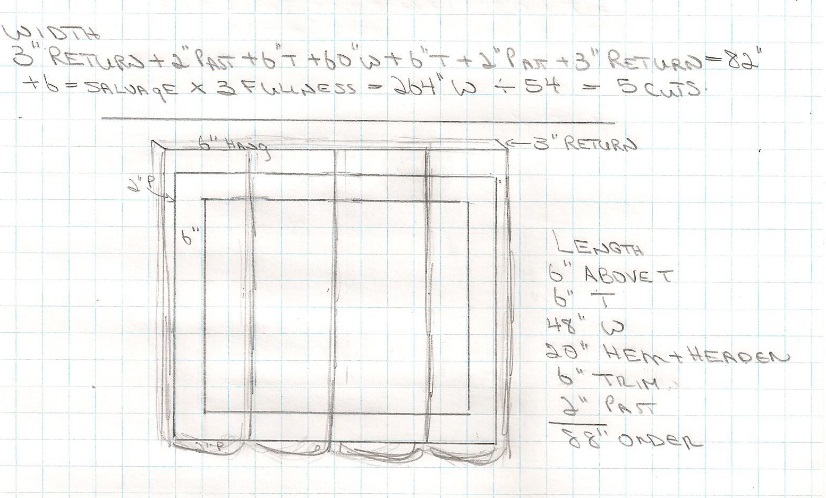 WIDTH
3" RETURN + 2" PAST + 6" T + 60" W + 6" T + 2" PAST + 3" RETURN = 82"
+6 = SALVAGE X 3 FULLNESS = 264" W ÷ 54 = 5 CUTS.
6" HANG
3" RETURN
2" P
6"
LENGTH
6" ABOVE T
6" T
48" W
20" HEM + HEADEN
6" TRIM
2" PAST
88" ORDER
2" P